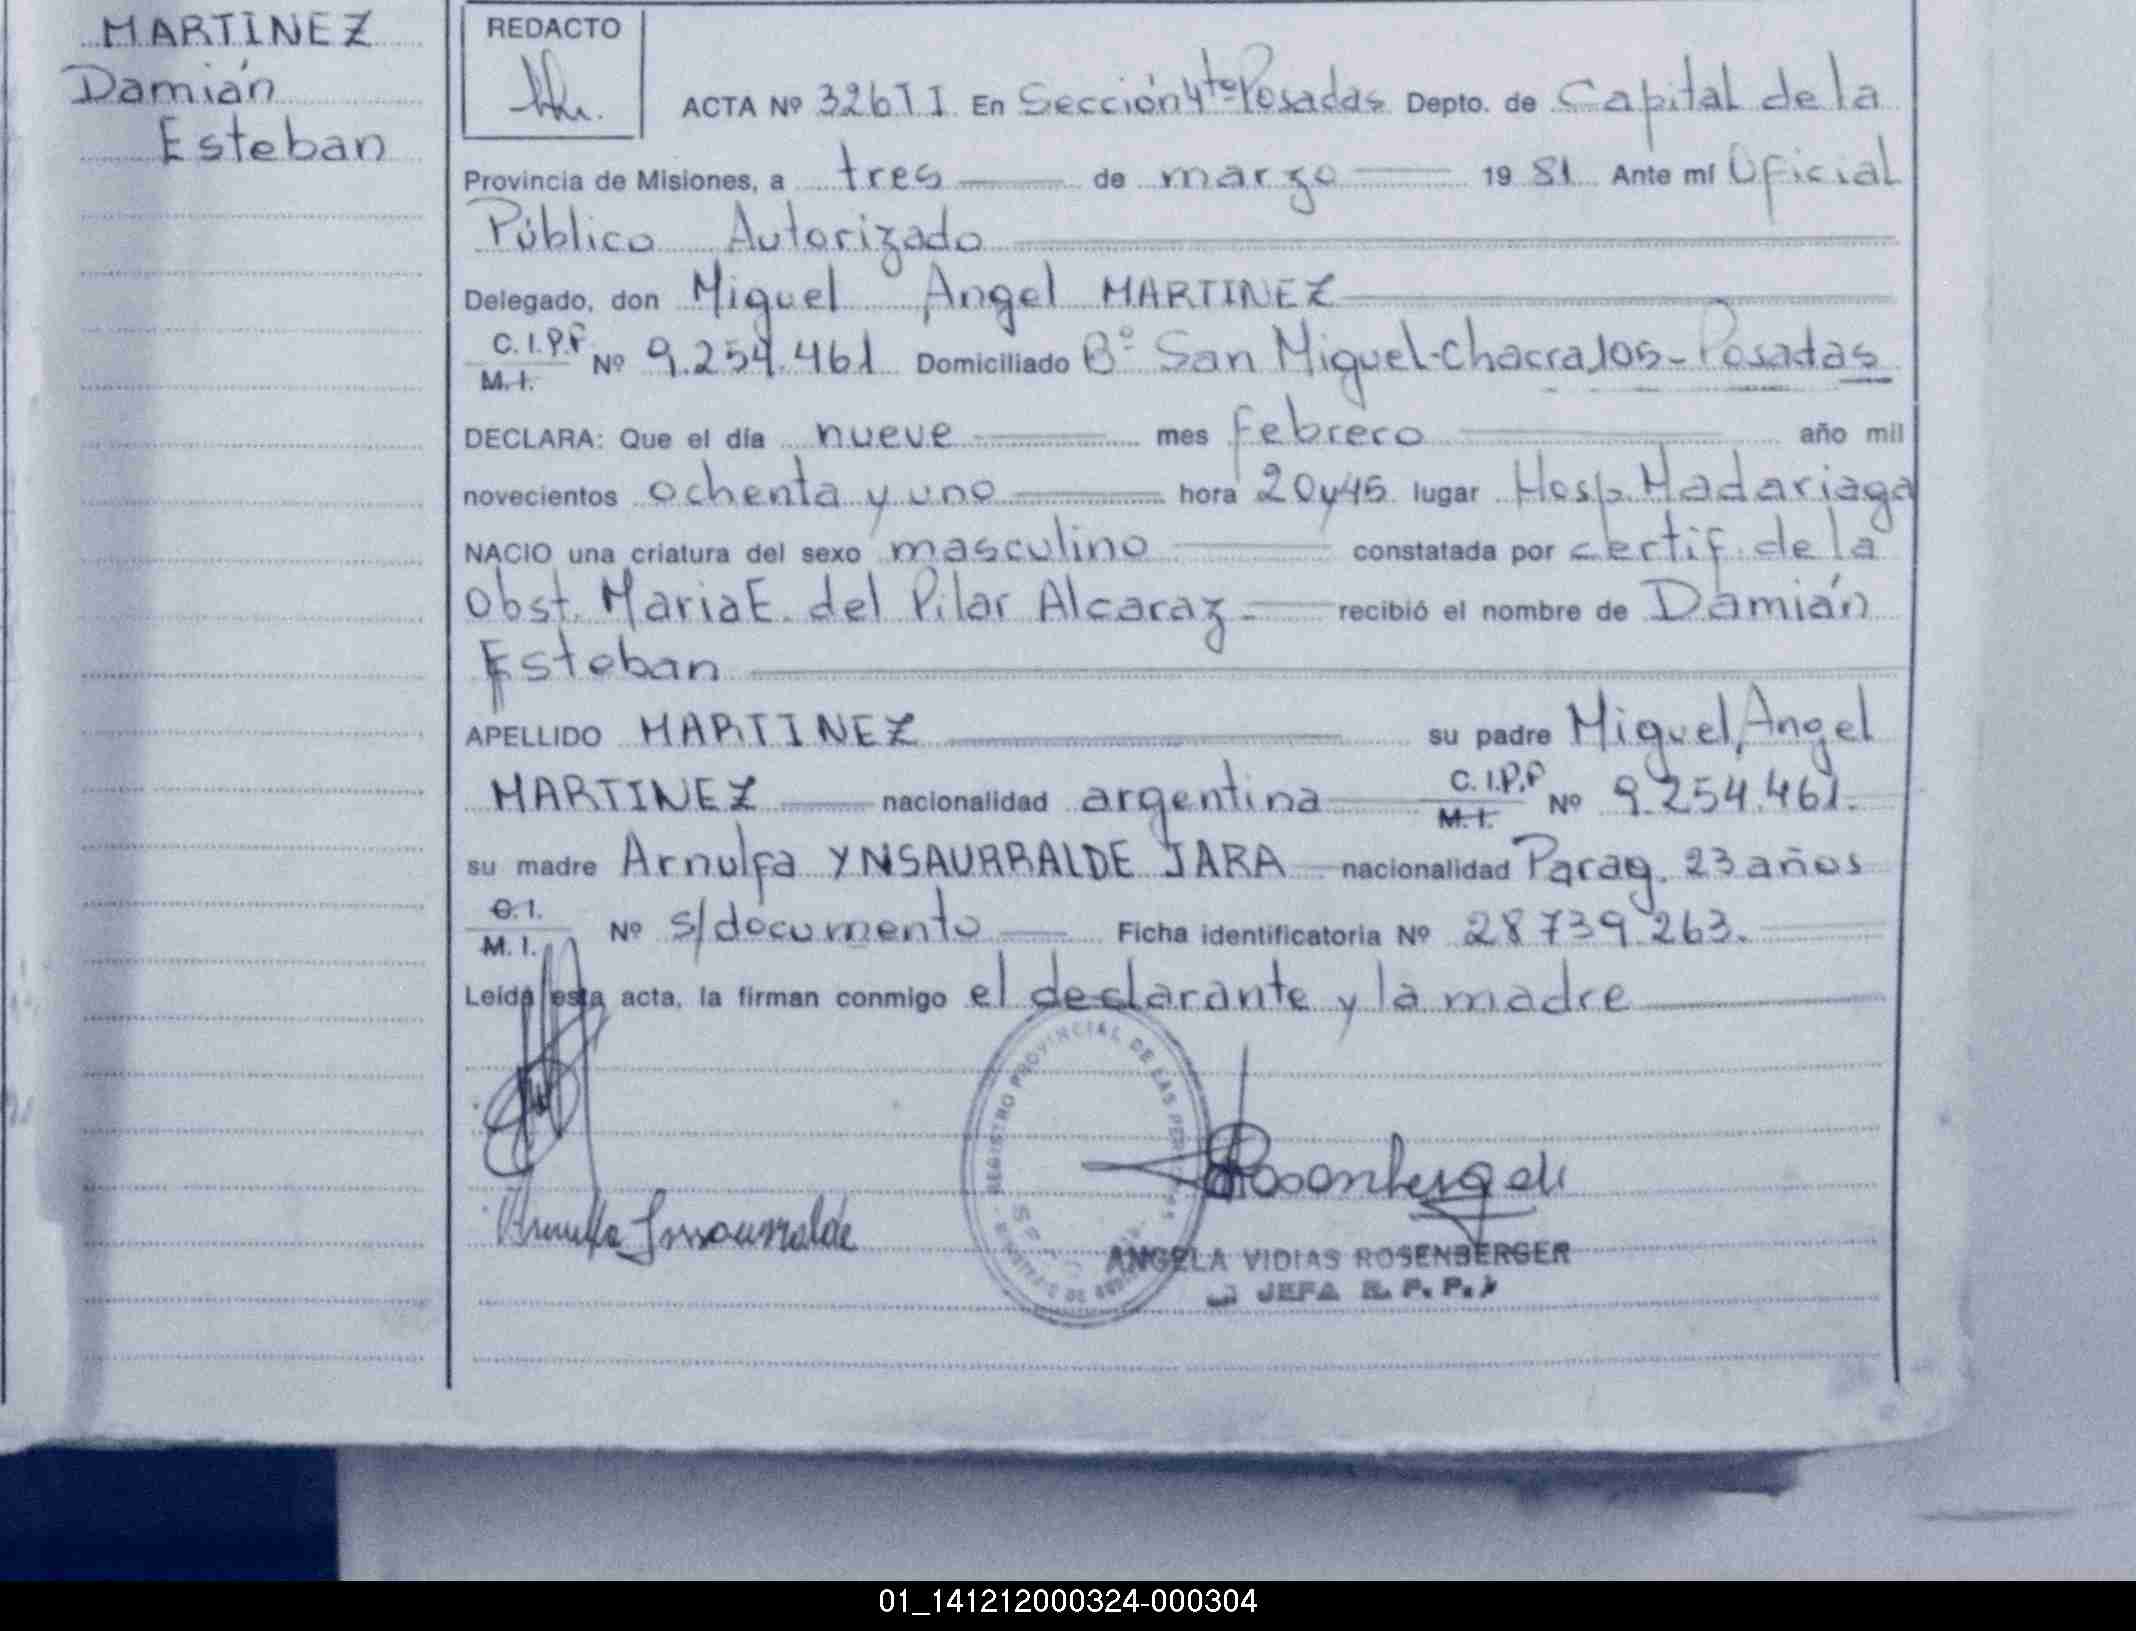 MARTINEZ
Damián
Esteban
REDACTO
ACTA Nº 326 T I En Sección 4ta Posadas Depto. de Capital de la
Provincia de Misiones, a tres de marzo 19 81 Ante mí Oficial
Público Autorizado
Delegado, don Miguel Angel MARTINEZ
C.I.P.P
M.I. Nº 9.254.461 Domiciliado Bº San Miguel-Chacra 105-Posadas
DECLARA: Que el día nueve mes febrero año mil
novecientos ochenta y uno hora 20y45 lugar Hosp. Madariaga
NACIO una criatura del sexo masculino constatada por certif. de la
Obst. Maria E. del Pilar Alcaraz recibió el nombre de Damián
Esteban
APELLIDO MARTINEZ su padre Miguel Angel
MARTINEZ nacionalidad argentina C.I.P.P M.I. Nº 9.254.461.
su madre Arnulfa YNSAURRALDE JARA nacionalidad Parag. 23 años
C.I.
M.I. Nº s/documento Ficha identificatoria Nº 28739263.
Leída esta acta, la firman conmigo el declarante y la madre
REGISTRO PROVINCIAL DE LAS PERSONAS
Rosenberg de
ANGELA VIDIAS ROSENBERGER
JEFA R. P. P.
01_141212000324-000304